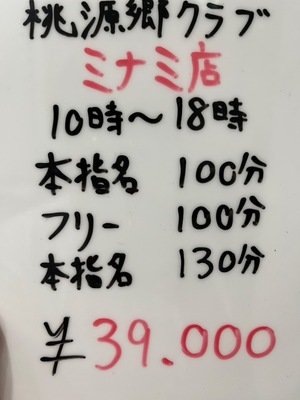 桃源郷クラブ
ミナミ店
10時〜18時
本指名 100分
フリー 100分
本指名 130分
¥39.000